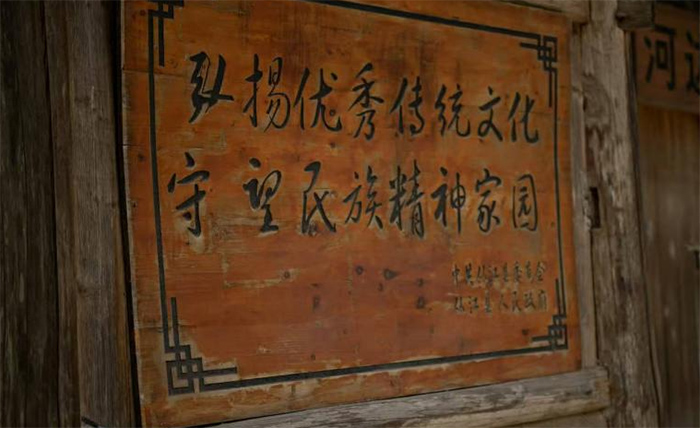 弘揚优秀传统文化
守望民族精神家园
中共从江县委员会
从江县人民政府
河边